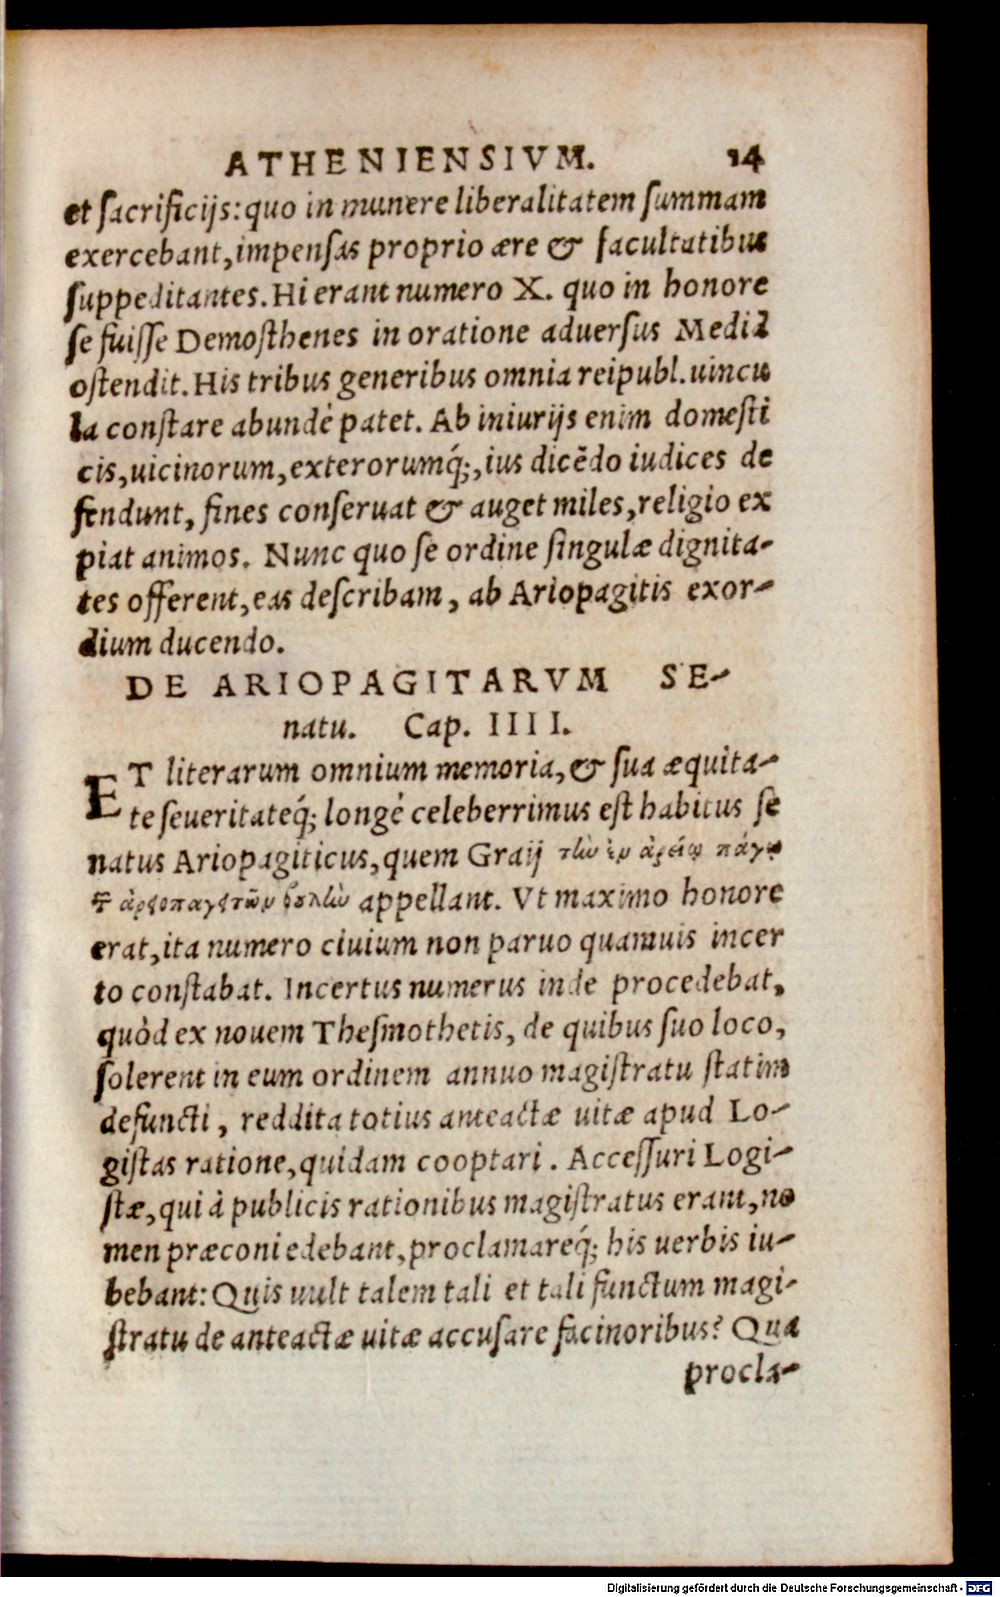 ATHENIENSIVM. 14
et ſacrificijs: quo in munere liberalitatem ſummam
exercebant, impenſas proprio ære & facultatibus
ſuppeditantes. Hi erant numero X. quo in honore
ſe fuiſſe Demoſthenes in oratione aduerſus Mediā
oſtendit. His tribus generibus omnia reipubl. uincu
la conſtare abundè patet. Ab iniurijs enim domeſti
cis, uicinorum, exterorumq́;, ius dicēdo iudices de
fendunt, fines conſeruat & auget miles, religio ex
piat animos. Nunc quo ſe ordine ſingulæ dignita-
tes offerent, eas deſcribam, ab Ariopagitis exor-
dium ducendo.
DE ARIOPAGITARVM SE-
natu. Cap. IIII.
ET literarum omnium memoria, & ſua æquita-
te ſeueritateq́; longè celeberrimus eſt habitus ſe
natus Ariopagiticus, quem Graij τὼ ἐν ἀρείῳ πάγῳ
ἀρειοπαγιτῶν βουλὼ appellant. Vt maximo honore
erat, ita numero ciuium non paruo quamuis incer
to conſtabat. Incertus numerus inde procedebat,
quòd ex nouem Theſmothetis, de quibus ſuo loco,
ſolerent in eum ordinem annuo magiſtratu ſtatim
defuncti, reddita totius anteactæ uitæ apud Lo-
giſtas ratione, quidam cooptari. Acceſſuri Logi-
ſtæ, qui à publicis rationibus magiſtratus erant, no
men præconi edebant, proclamareq́; his uerbis iu-
bebant: Quis uult talem tali et tali functum magi-
ſtratu de anteactæ uitæ accuſare facinoribus? Qua
procla-
Digitalisierung gefördert durch die Deutsche Forschungsgemeinschaft - DFG